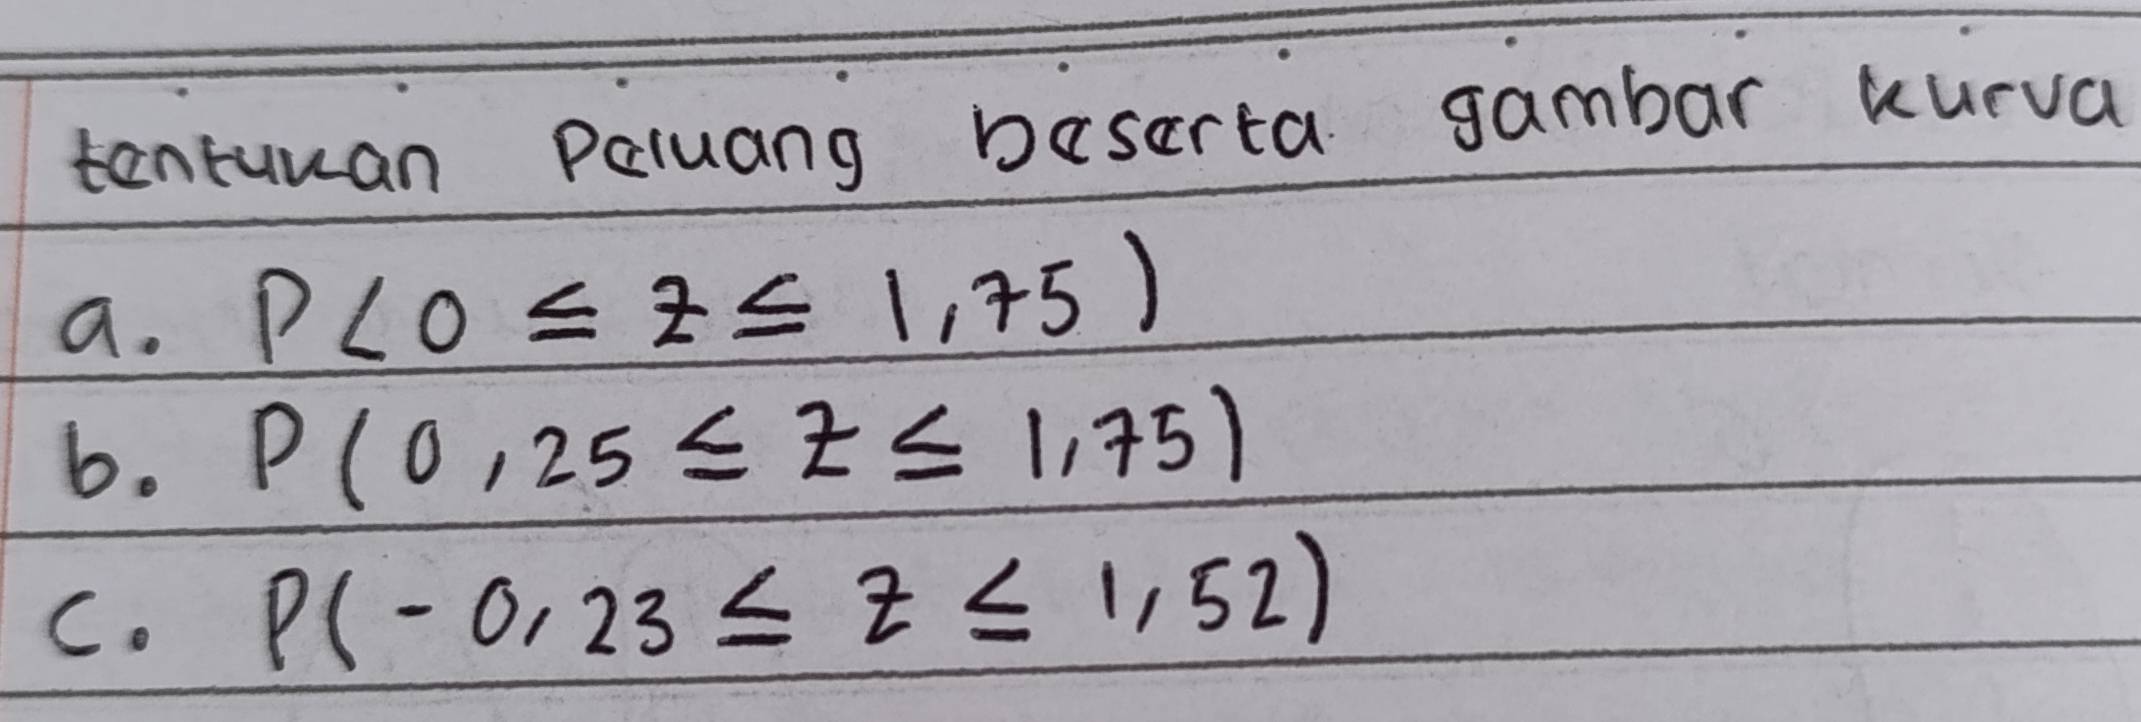 tentukan Peluang beserta gambar kurva
a. P(0 ≤ z ≤ 1,75)
b. P(0,25 ≤ z ≤ 1,75)
c. P(-0,23 ≤ z ≤ 1,52)